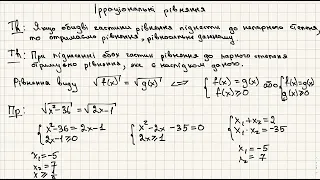 Ірраціональні рівняння
Th: Якщо обидві частини рівняння піднести до непарного степеня,
то отримаємо рівняння, рівносильне даному
Th: При піднесенні обох частин рівняння до парного степеня
отримуємо рівняння, яке є наслідком даного.
Рівняння виду √f(x) = √g(x) <=> {f(x) = g(x) f(x) ≥ 0 або {f(x) = g(x) g(x) ≥ 0
Пр: √x²-36 = √2x-1
{x²-36 = 2x-1 2x-1 ≥ 0 {x²-2x-35=0 2x ≥ 1 {x₁+x₂ = 2 x₁·x₂ = -35
x₁ = -5 x₁ = -5
x₂ = 7 x₂ = 7